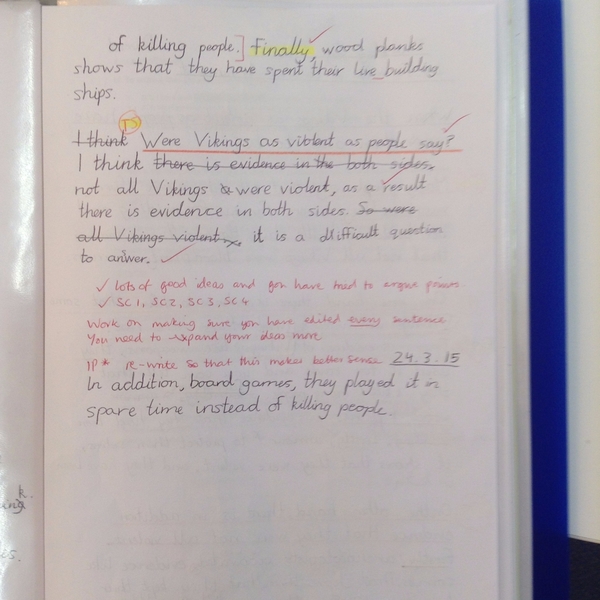 of killing people.] Finally, wood planks
shows that they have spent their live building
ships.
TS
I think Were Vikings as violent as people say?
I think there is evidence in the both sides,
not all Vikings were violent, as a result
there is evidence in both sides. So were
all Vikings violent, it is a difficult question
to anwer.
✓ Lots of good ideas and you have tried to argue points
✓ SC1, SC2, SC3, SC4
Work on making sure you have edited every sentence
You need to expand your ideas more
IP* re-write so that this makes better sense 24.3.15
In addition, board games, they played it in
spare time instead of killing people.
k.
ing
is.